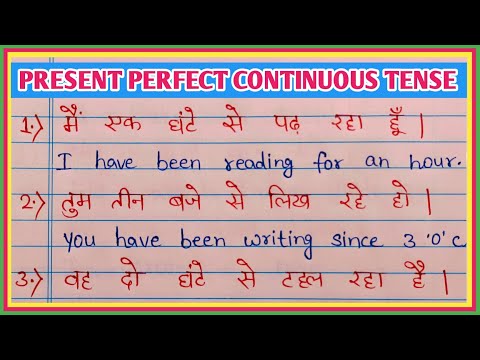 PRESENT PERFECT CONTINUOUS TENSE
1.) मैं एक घंटे से पढ़ रहा हूँ |
I have been reading for an hour.
2.) तुम तीन बजे से लिख रहे हो |
You have been writing since 3 'O' c
3.) वह दो घंटे से टहल रहा है |